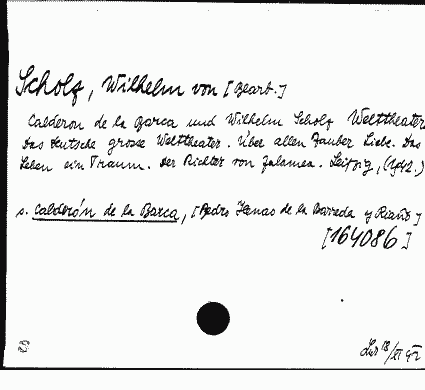 Scholz, Wilhelm von [Bearb.]
Calderon de la Barca und Wilhelm Scholz Welttheater
Das deutsche grosse Welttheater. Über allen Zauber Liebe. Das
Leben ein Traum. Der Richter von Zalamea. Leipzig, (1942.)
s. Calderón de la Barca, [Pedro Henao de la Barreda y Riaño]
[164086]
18/XI 42